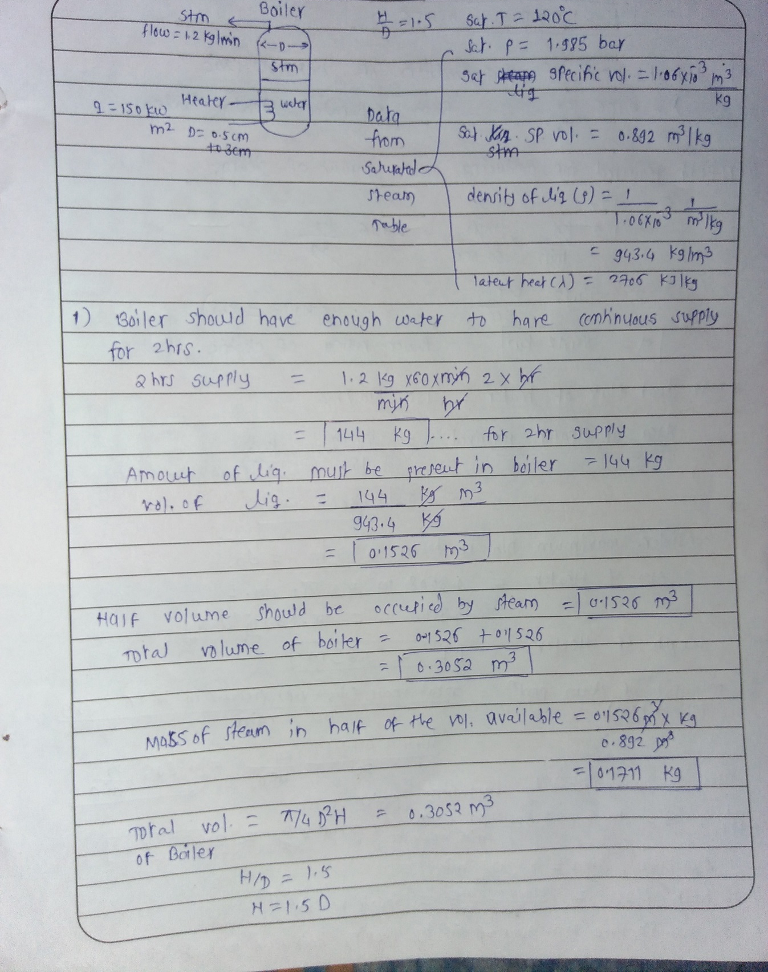 Boiler
Stm
flow = 1.2 kg/min
←D→
Stm
Heater
water
q = 150 kW
m2 D = 0.5cm
to 3cm
H/D = 1.5
Sat. T = 120°C
Sat. P = 1.985 bar
Sat liq specific vol. = 1.06x10^-3 m3/kg
Data
from
saturated
steam
Table
Sat stm SP vol. = 0.892 m3/kg
density of liq (ρ) = 1/1.06x10^-3 1/m3/kg
= 943.4 kg/m3
latent heat (λ) = 2706 KJ/kg
1) Boiler should have enough water to have continuous supply
for 2hrs.
2hrs supply = 1.2 kg/min x60xmin/hr 2 x hr
= 144 kg .... for 2hr supply
Amount of liq. must be present in boiler = 144 kg
vol. of liq. = 144/943.4 kg m3/kg
= 0.1526 m3
Half volume should be occupied by steam = 0.1526 m3
Total volume of boiler = 0.1526 + 0.1526
= 0.3052 m3
Mass of steam in half of the vol. available = 0.1526 m3 x kg/0.892 m3
= 0.1711 kg
Total vol. = π/4 D2H = 0.3052 m3
of Boiler
H/D = 1.5
H = 1.5 D